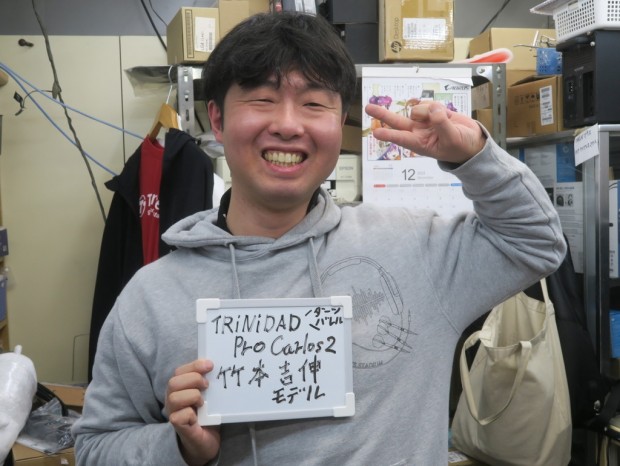 TRiNiDAD ダーツバレル
Pro Carlos2
竹本吉伸
モデル
12